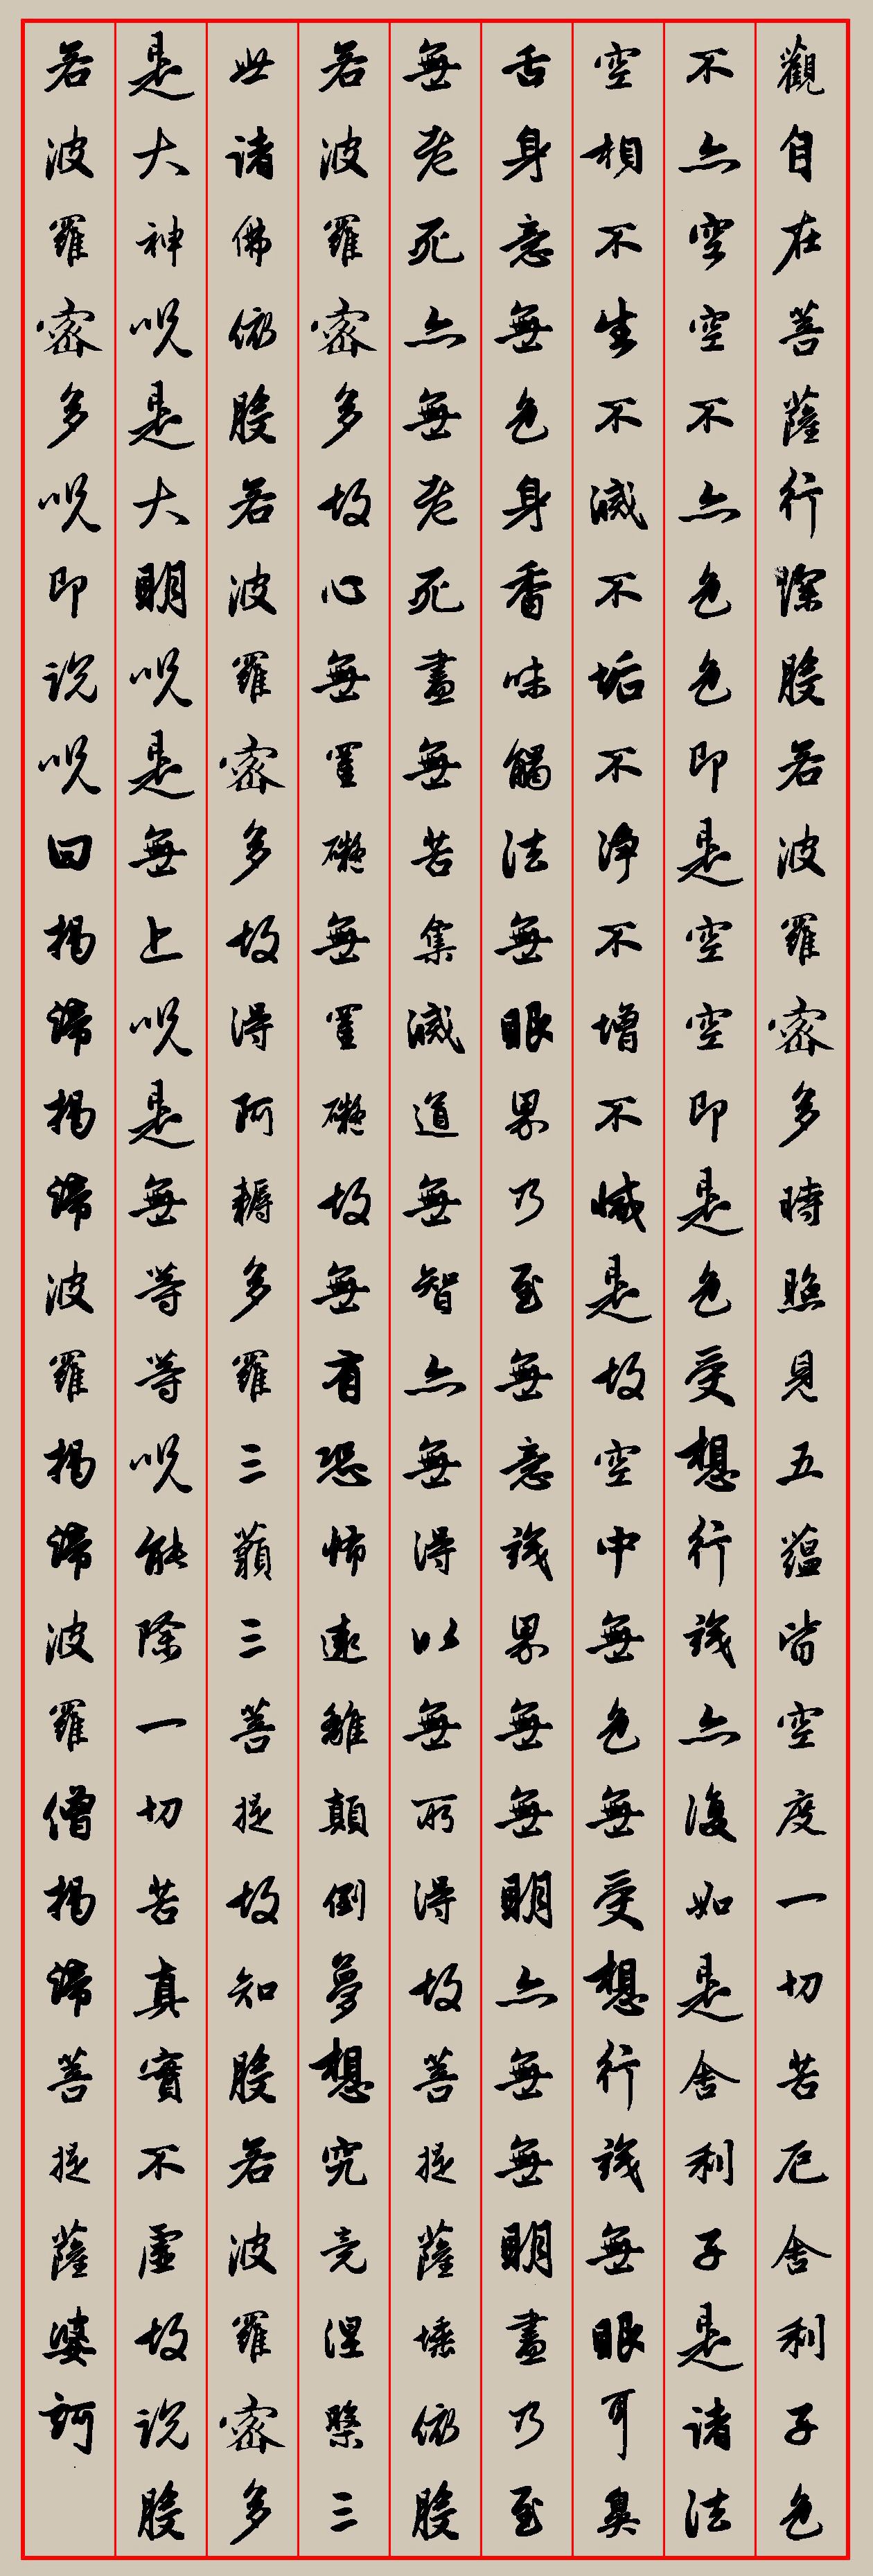 觀自在菩薩行深般若波羅密多時照見五蘊皆空度一切苦厄舍利子色
不亦空空不亦色色即是空空即是色受想行識亦復如是舍利子是諸法
空相不生不滅不垢不淨不增不減是故空中無色無受想行識無眼耳鼻
舌身意無色身香味觸法無眼界乃至無意識界無無明亦無無明盡乃至
無老死亦無老死盡無苦集滅道無智亦無得以無所得故菩提薩埵依般
若波羅密多故心無罣礙無罣礙故無有恐怖遠離顛倒夢想究竟涅槃三
世諸佛依般若波羅密多故得阿耨多羅三藐三菩提故知般若波羅密多
是大神咒是大明咒是無上咒是無等等咒能除一切苦真實不虛故說般
若波羅密多咒即說咒曰揭諦揭諦波羅揭諦波羅僧揭諦菩提薩婆訶